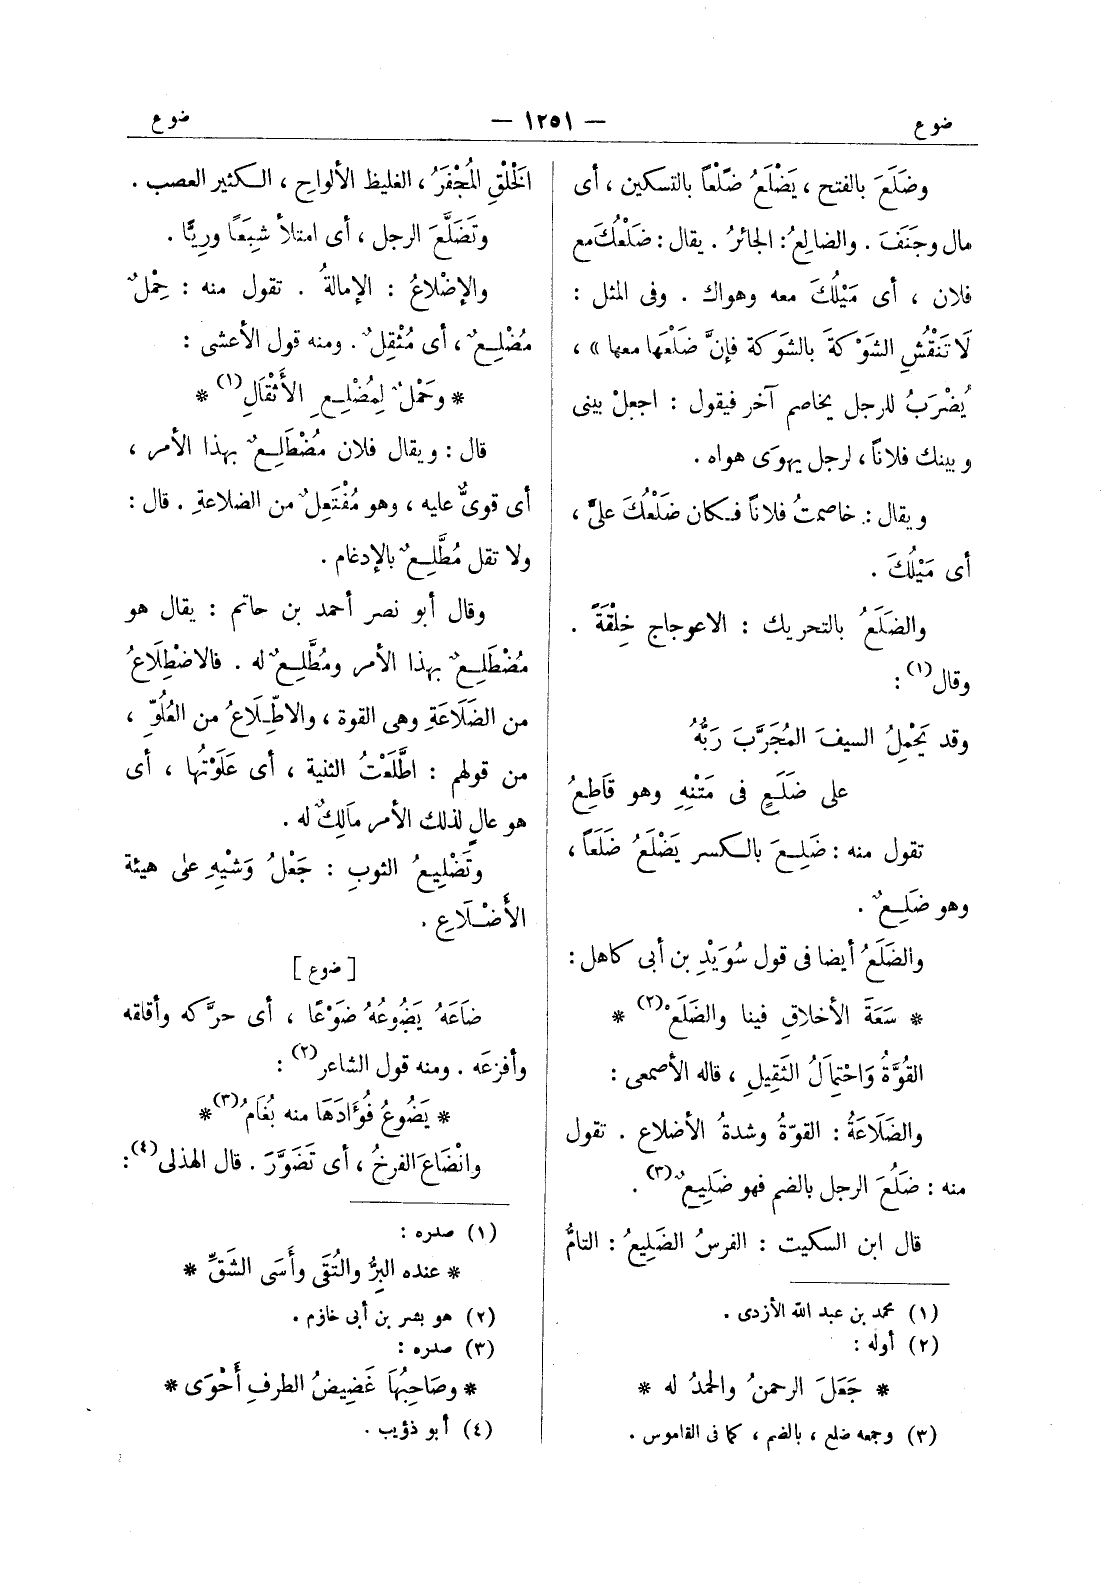 ضوع — ١٢٥١ — ضوع
وضَلَعَ بالفتح ، يَضْلَعُ ضَلْعاً بالتسكين ، أى
مال وجَنَفَ . والضالِعُ : الجائرُ . يقال : ضَلْعُكَ مع
فلان ، أى مَيْلُكَ معه وهواك . وفى المثل :
لَا تَنْقُشِ الشوْكةَ بالشوكة فإنَّ ضَلْعَها معها » ،
يُضْرَبُ للرجل يخاصم آخر فيقول : اجعلْ بينى
وبينك فلاناً ، لرجل يهوَى هواه .
ويقال : خاصمتُ فلاناً فكان ضَلْعُكَ علىَّ ،
أى مَيْلُكَ .
والضَلَعُ بالتحريك : الاعوجاج خِلْقَةً .
وقال (١) :
وقد يَحْمِلُ السيفَ المُجَرَّبَ رَبُّهُ
على ضَلَعٍ فى مَتْنِهِ وهو قَاطِعُ
تقول منه : ضَلِعَ بالكسر يَضْلَعُ ضَلَعاً ،
وهو ضَلِعٌ .
والضَلَعُ أيضا فى قول سُوَيْدِ بن أبى كاهل :
* سَعَةَ الأخلاقِ فينا والضَلَعْ (٢) *
القُوَّةُ وَاحْتِمَالُ الثَقِيلِ ، قاله الأصمعى :
والضَلَاعَةُ : القوّةُ وشدةُ الأضلاع . تقول
منه : ضَلُعَ الرجل بالضم فهو ضَلِيعٌ (٣) .
قال ابن السكيت : الفرسُ الضَلِيعُ : التامُّ
(١) محمد بن عبد الله الأزدى .
(٢) أوله :
* جَعَلَ الرحمنُ والحمدُ له *
(٣) وجمعه ضلع ، بالضم ، كما فى القاموس .
الخْلْقِ المُجْفَرُ ، الغليظ الألواح ، الكثير العصب .
وتَضَلَّعَ الرجل ، أى امتلأ شِبَعًا ورِيًّا .
والإضْلَاعُ : الإمالةُ . تقول منه : حِمْلٌ
مُضْلِعٌ ، أى مُثْقِلٌ . ومنه قول الأعشى :
* وحَمْلٌ لِمُضْلِعِ الأَثْقَالِ (١) *
قال : ويقال فلان مُضْطَلِعٌ بهذا الأمر ،
أى قوىٌّ عليه ، وهو مُفْتَعِلٌ من الضلاعةِ . قال :
ولا تقل مُطَّلِعٌ بالإدغام .
وقال أبو نصر أحمد بن حاتم : يقال هو
مُضْطَلِعٌ بهذا الأمر ومُطَّلِعٌ له . فالاضْطِلَاعُ
من الضَلَاعَةِ وهى القوة ، والاطِّلَاعُ من العُلُوِّ ،
من قولهم : اطَّلَعْتُ الثنية ، أى عَلَوْتُها ، أى
هو عالٍ لذلك الأمر مَالِكٌ له .
وتَضْلِيعُ الثوبِ : جَعْلُ وَشْيِهِ على هيئة
الأَضْلَاعِ .
[ ضوع ]
ضَاعَهُ يَضُوعُهُ ضَوْعًا ، أى حرَّكه وأقلقه
وأفزعَه . ومنه قول الشاعر (٢) :
* يَضُوعُ فُؤَادَهَا منه بُغَامُ (٣) *
وانْضَاعَ الفرخُ ، أى تَضَوَّرَ . قال الهذلى (٤) :
(١) صدره :
* عنده البِرُّ والتُقَى وأَسَى الشَقِّ *
(٢) هو بشر بن أبى خازم .
(٣) صدره :
* وصَاحِبُهَا غَضِيضُ الطرفِ أَحْوَى *
(٤) أبو ذؤيب .